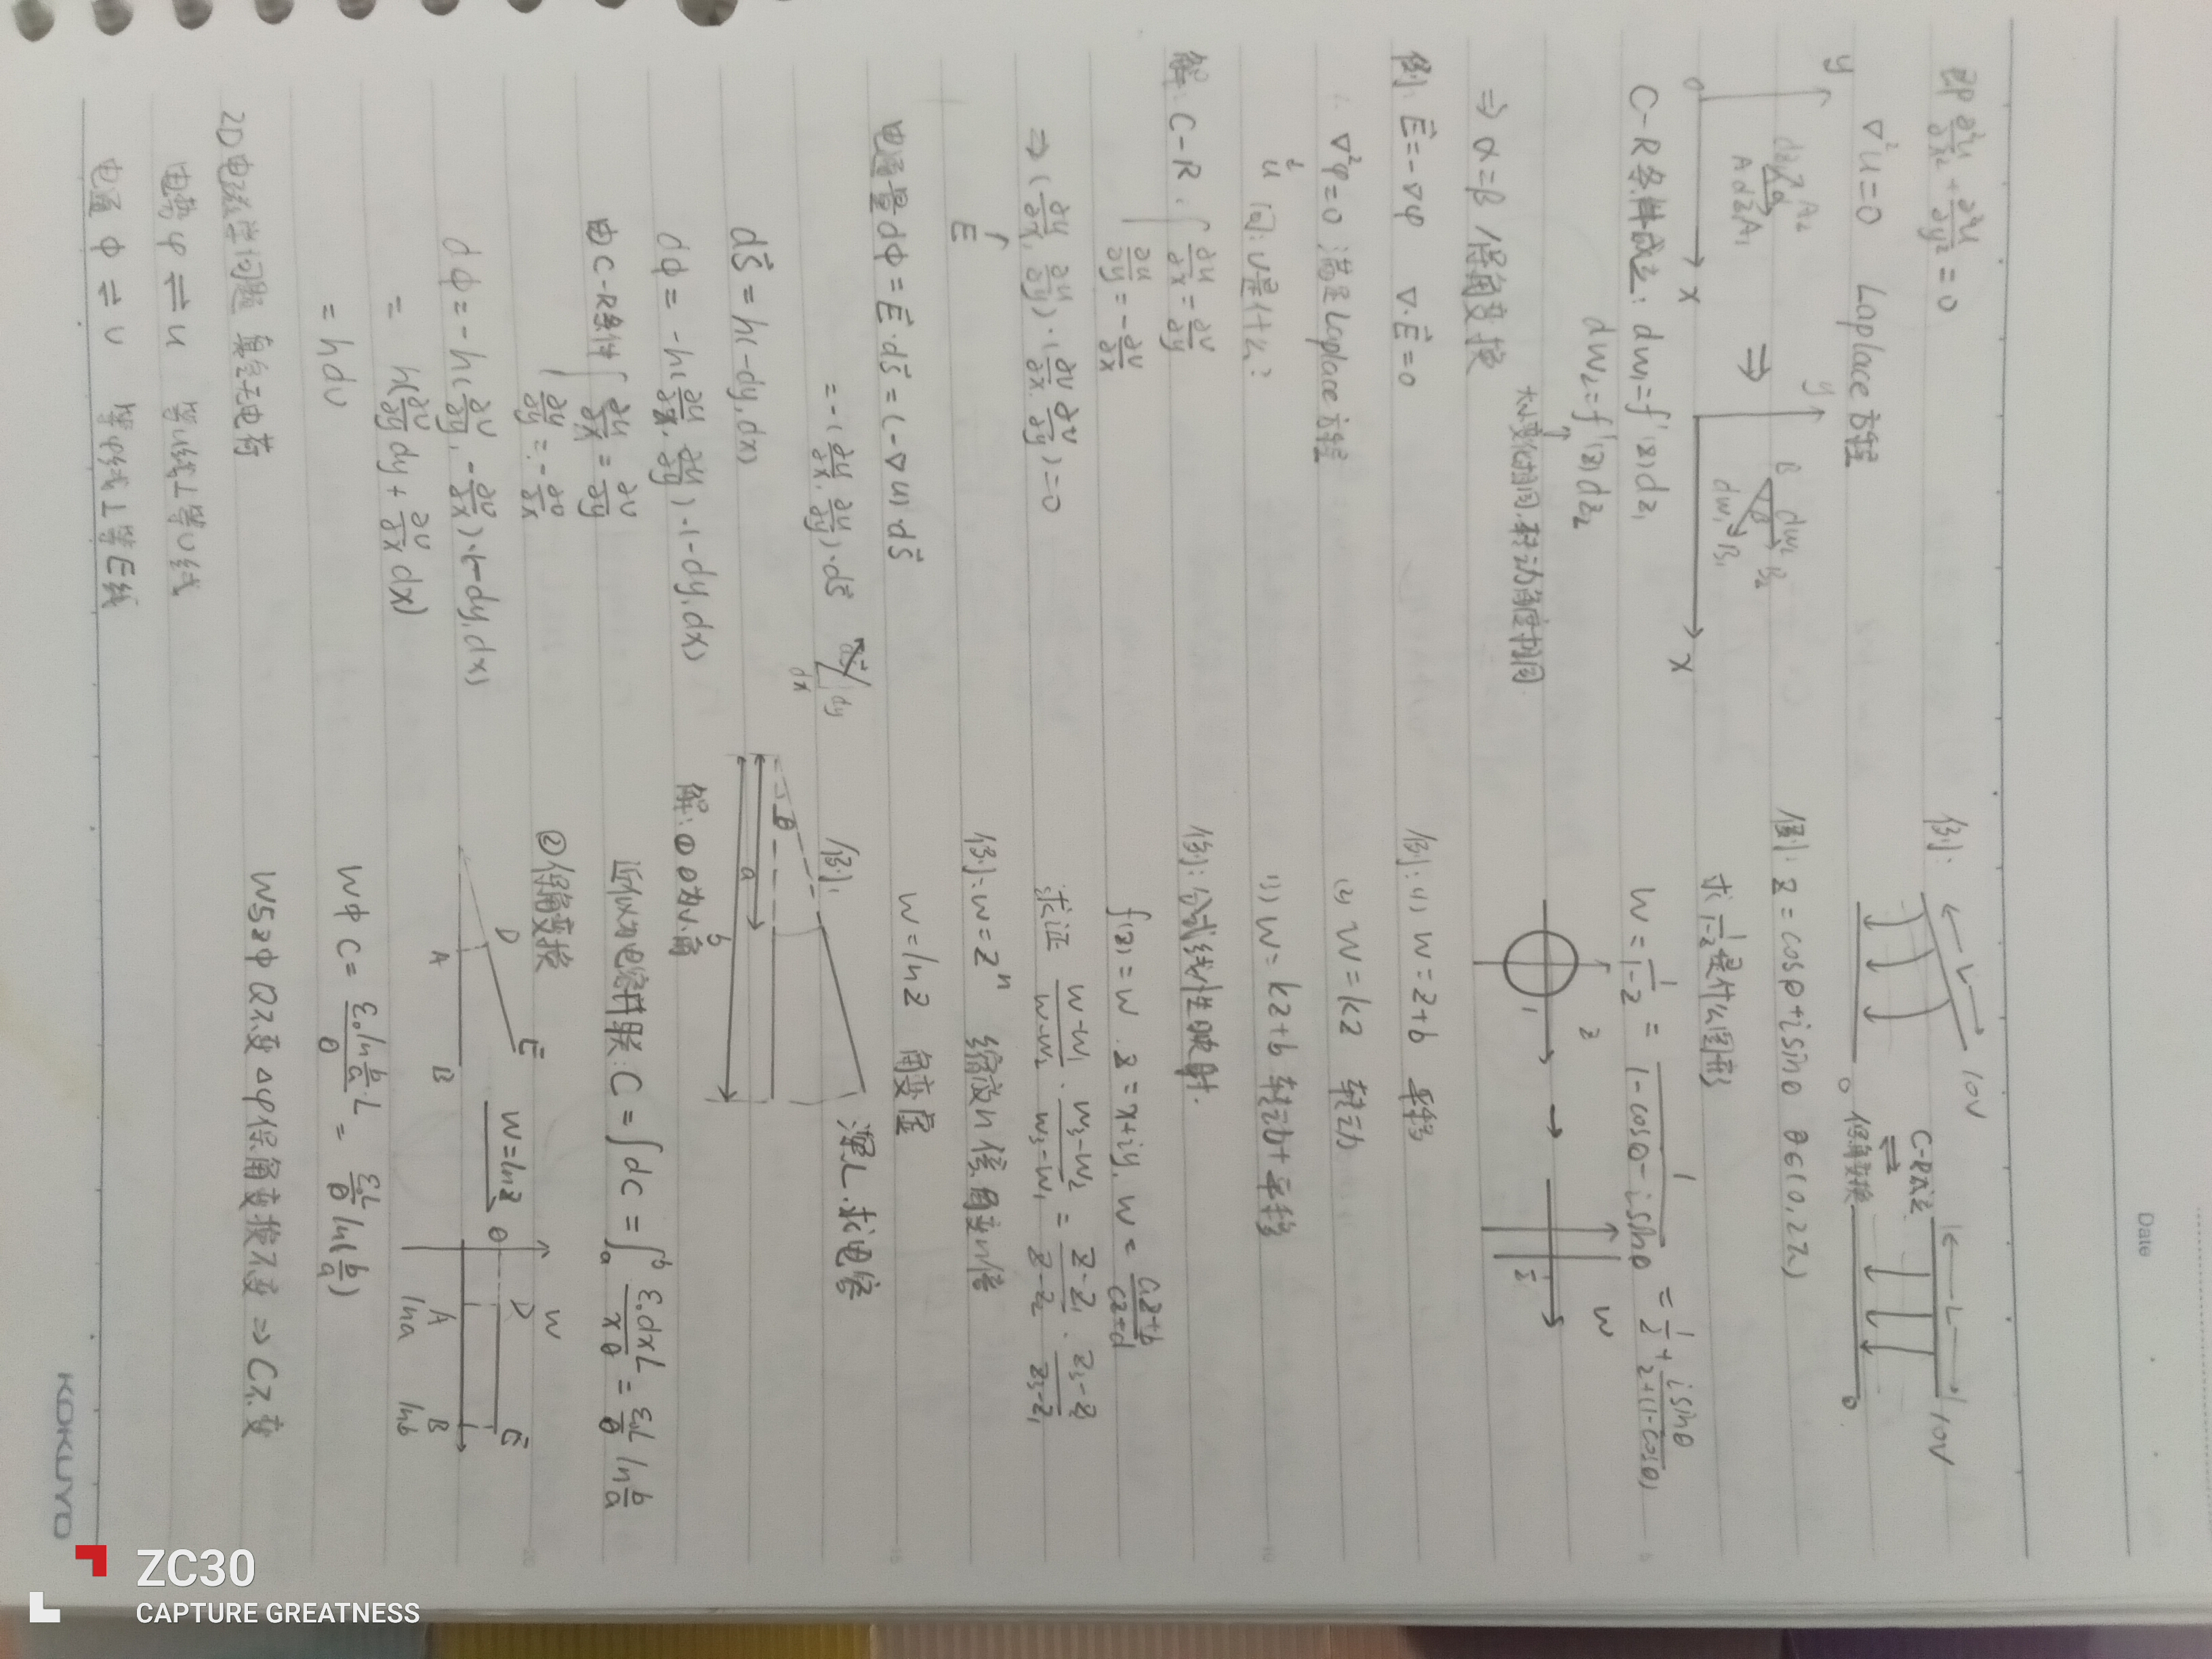 Date
即 ∂²u/∂x² + ∂²u/∂y² = 0
∇²u=0 Laplace方程
y
A₂
dz₂ α
A dz₁ A₁
0
x
⇒
y
B dw₂ B₂
β
dw₁ B₁
x
C-R条件成立: dw₁=f'(z)dz₁
dw₂=f'(z)dz₂
大小变化相同,转动角度相同
⇒ α=β /保角变换
例: E⃗=-∇φ ∇·E⃗=0
∴ ∇²φ=0 满足Laplace方程
u 问: v是什么?
解: C-R. { ∂u/∂x = ∂v/∂y
∂u/∂y = -∂v/∂x
⇒ (∂u/∂x, ∂u/∂y)·(∂v/∂x, ∂v/∂y)=0
E⃗
电通量dΦ=E⃗·dS⃗=(-∇u)·dS⃗
= -(∂u/∂x, ∂u/∂y)·dS⃗
dS⃗
dy
dx
dS⃗=h(-dy,dx)
dφ= -h(∂u/∂x, ∂u/∂y)·(-dy,dx)
由C-R条件 { ∂u/∂x = ∂v/∂y
∂u/∂y = -∂v/∂x
dφ= -h(∂v/∂y, -∂v/∂x)·(-dy,dx)
= h(∂v/∂y dy + ∂v/∂x dx)
= hdv
2D电磁学问题 真空无电荷
电势φ ⇌ u 等u线⊥等v线
电通Φ ⇌ v 等φ线⊥等E线
例:
L
10V
0
C-R成立
⇌
保角变换
L
10V
0
例: z=cosθ+isinθ θ∈(0,2π)
求1/(1-z)是什么图形
w=1/(1-z) = 1/(1-cosθ-isinθ) = 1/2 + isinθ/2(1-cosθ)
z
1
→
w
1/2
例: (1) w=z+b 平移
(2) w=kz 转动
(3) w=kz+b 转动+平移
例: 分式线性映射.
f(z)=w z=x+iy, w=(az+b)/(cz+d)
求证 (w-w₁)/(w-w₂)·(w₃-w₂)/(w₃-w₁) = (z-z₁)/(z-z₂)·(z₃-z₂)/(z₃-z₁)
例: w=zⁿ 缩放n倍,角变n倍
w=lnz 角变层
例:
深L.求电容
θ
a
b
解: ① θ为小角
近似为电容并联: C=∫dC=∫ₐᵇ ε₀dxL/xθ = ε₀L/θ ln b/a
② 保角变换
D
E
A
B
w=lnz
w
θ
D
E
A
B
lna
lnb
wφ C= ε₀ln(b/a)·L/θ = ε₀L/θ ln(b/a)
w与zφ Q不变 Δφ保角变换不变 ⇒ C不变
KOKUYO
ZC30
CAPTURE GREATNESS